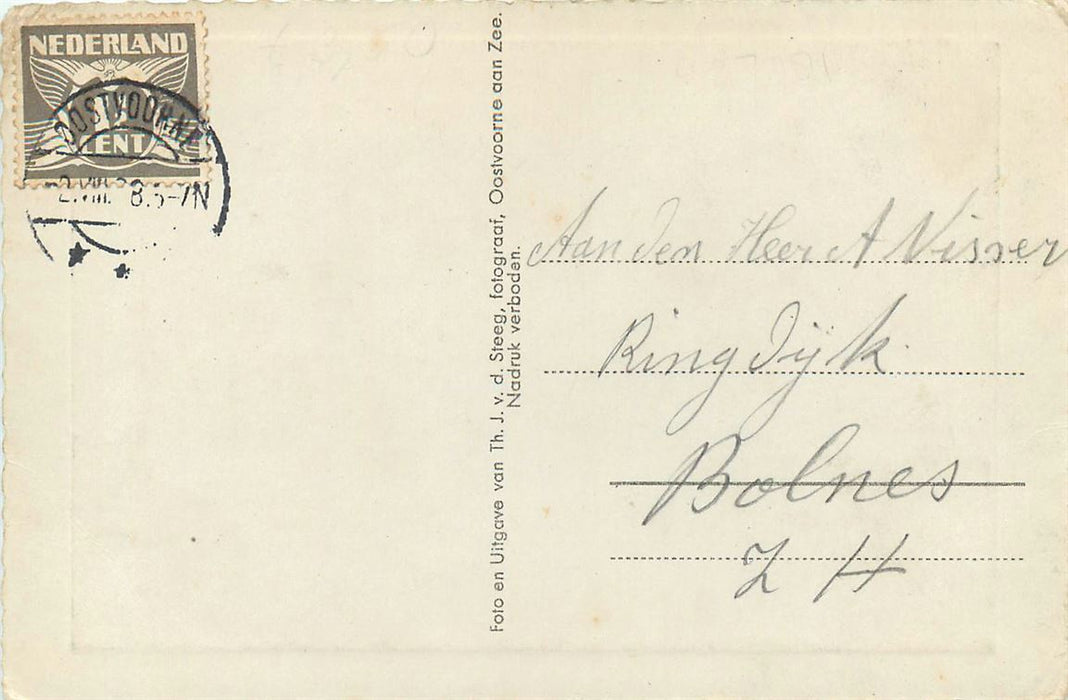 NEDERLAND
CENT
2.VIII. 8.5-7N
Foto en Uitgave van Th. J. v. d. Steeg, fotograaf, Oostvoorne aan Zee.
Nadruk verboden.
Aan den Heer A Visser
Ring Dijk
Bolnes
Z H